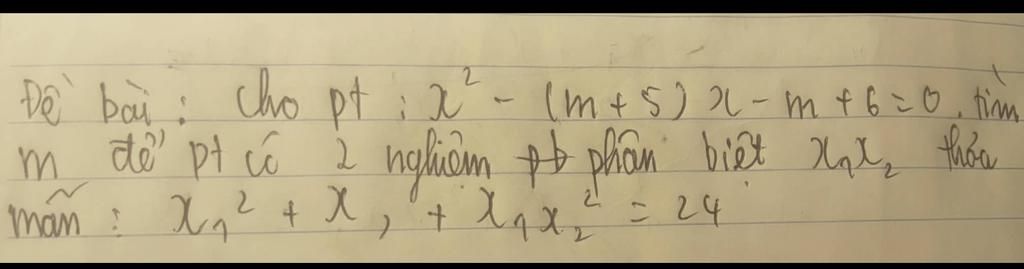 Đề bài : Cho pt : x² - (m + 5) x - m + 6 = 0. tìm
m để pt có 2 nghiệm phân biệt x₁x₂ thỏa
mãn : x₁² + x, + x₁x₂² = 24